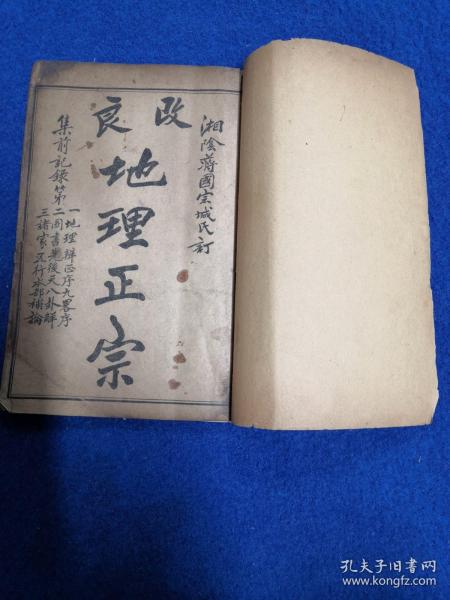 改良
湘陰蔣國宗城氏訂
地理正宗
集前記錄第
一地理辯正序九畧序
二圖書先後天八卦解
三諸家五行水部補論
孔夫子旧书网
www.kongfz.com